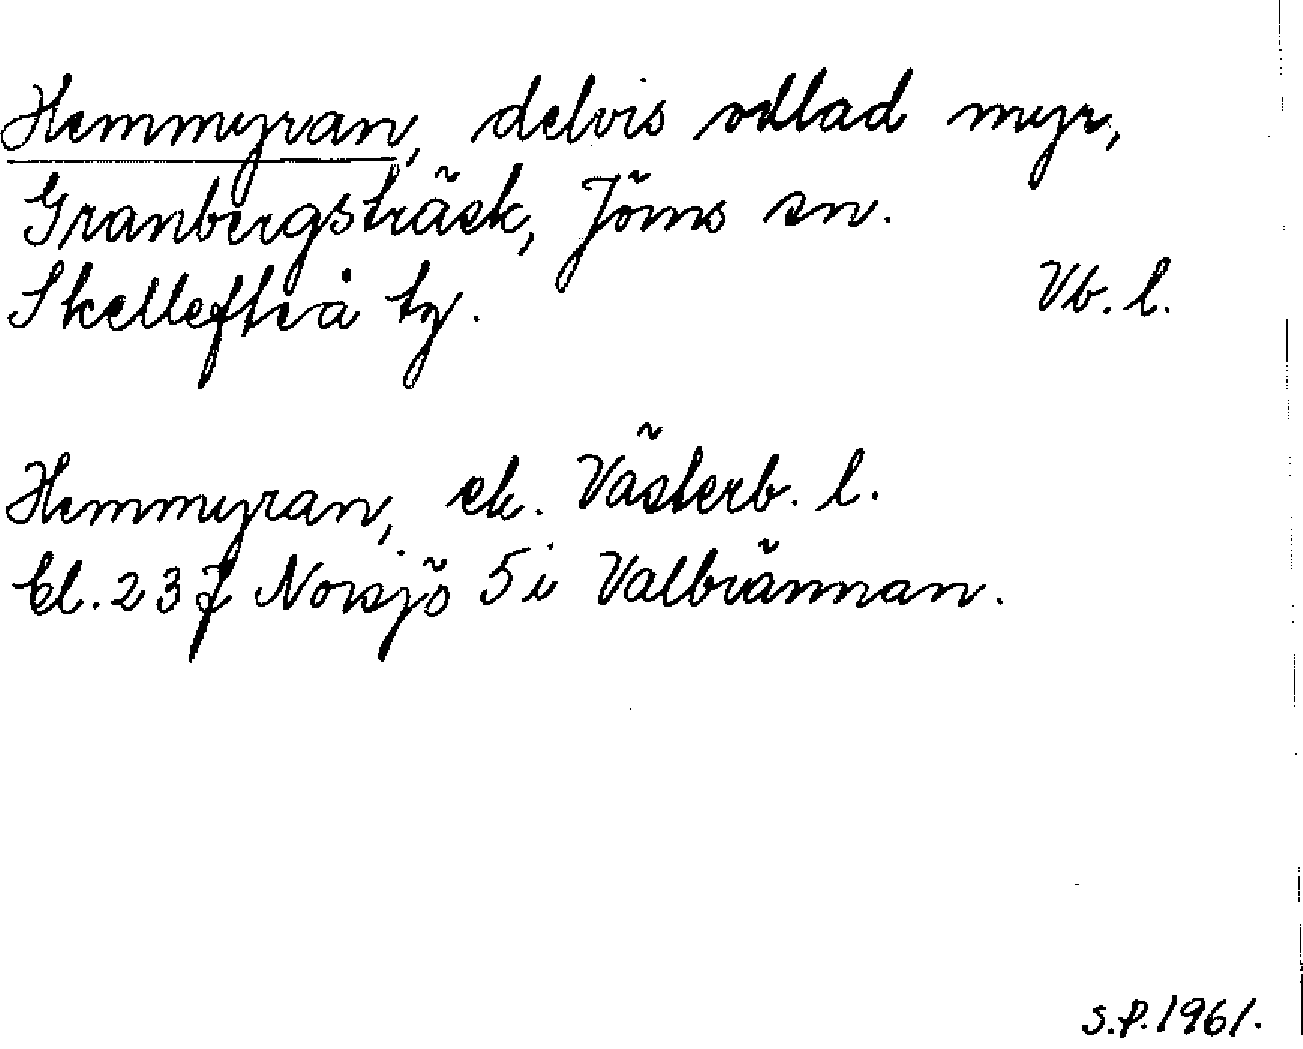 Hemmyran, delvis odlad myr,
Granbergsträsk, Jörns sn.
Skellefteå tg. Vb. l.
Hemmyran, ek. Västerb. l.
bl. 23 J Norsjö 5 i Valbrännan.
S.P. 1961.